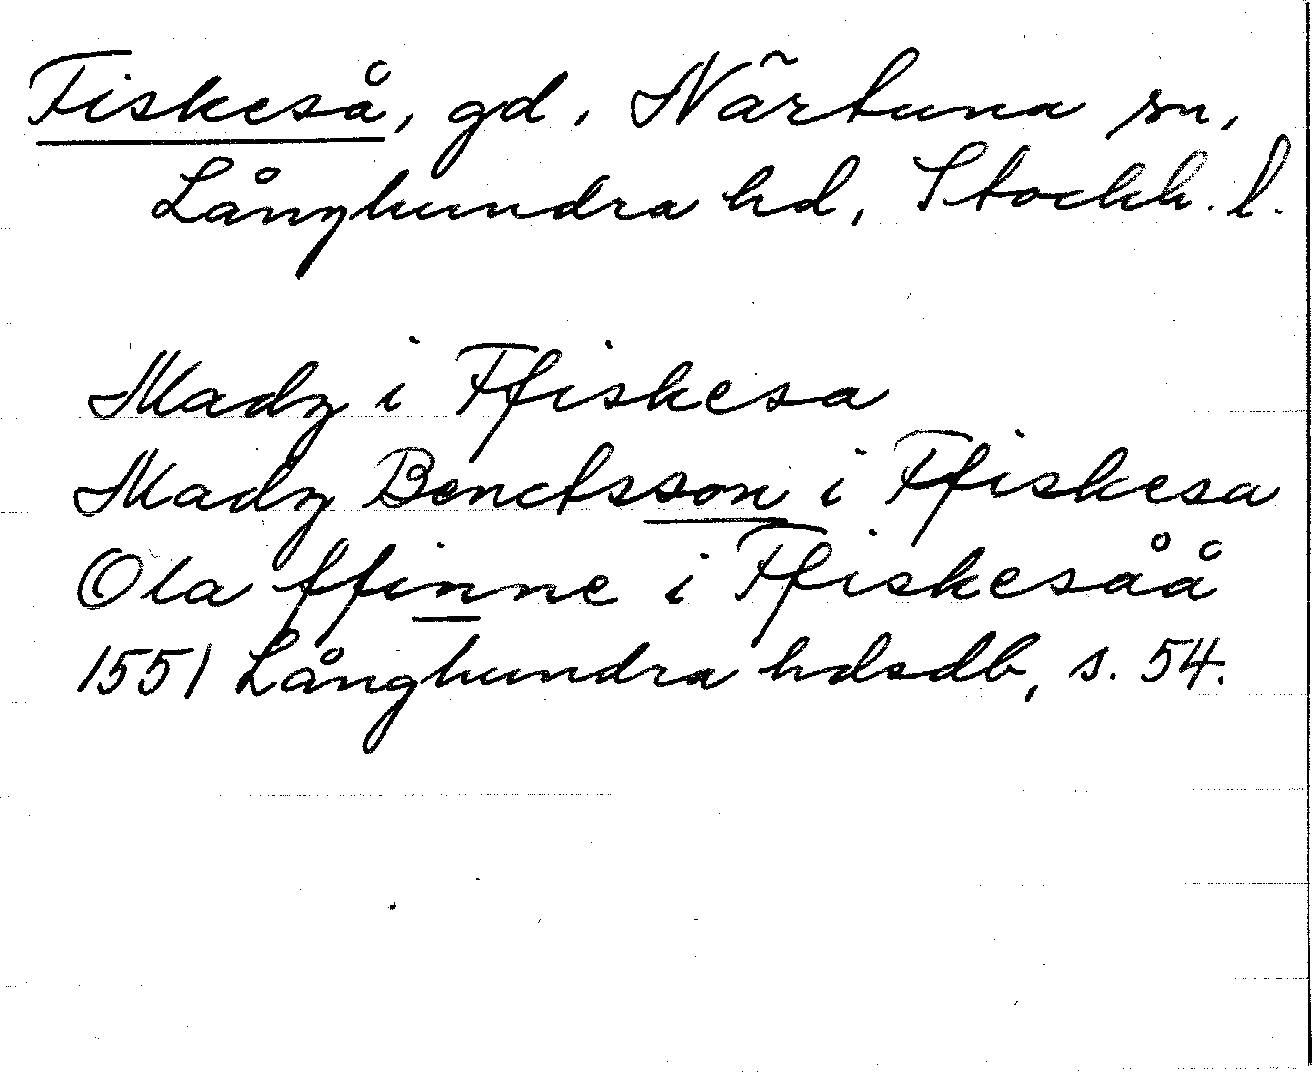 Fiskeså, gd, Närtuna sn,
Långhundra hd, Stockh. l.
Madz i Ffiskesa
Madz Benctsson i Ffiskesa
Ola ffinne i Ffiskesåå
1551 Långhundra hdsdb, s. 54.